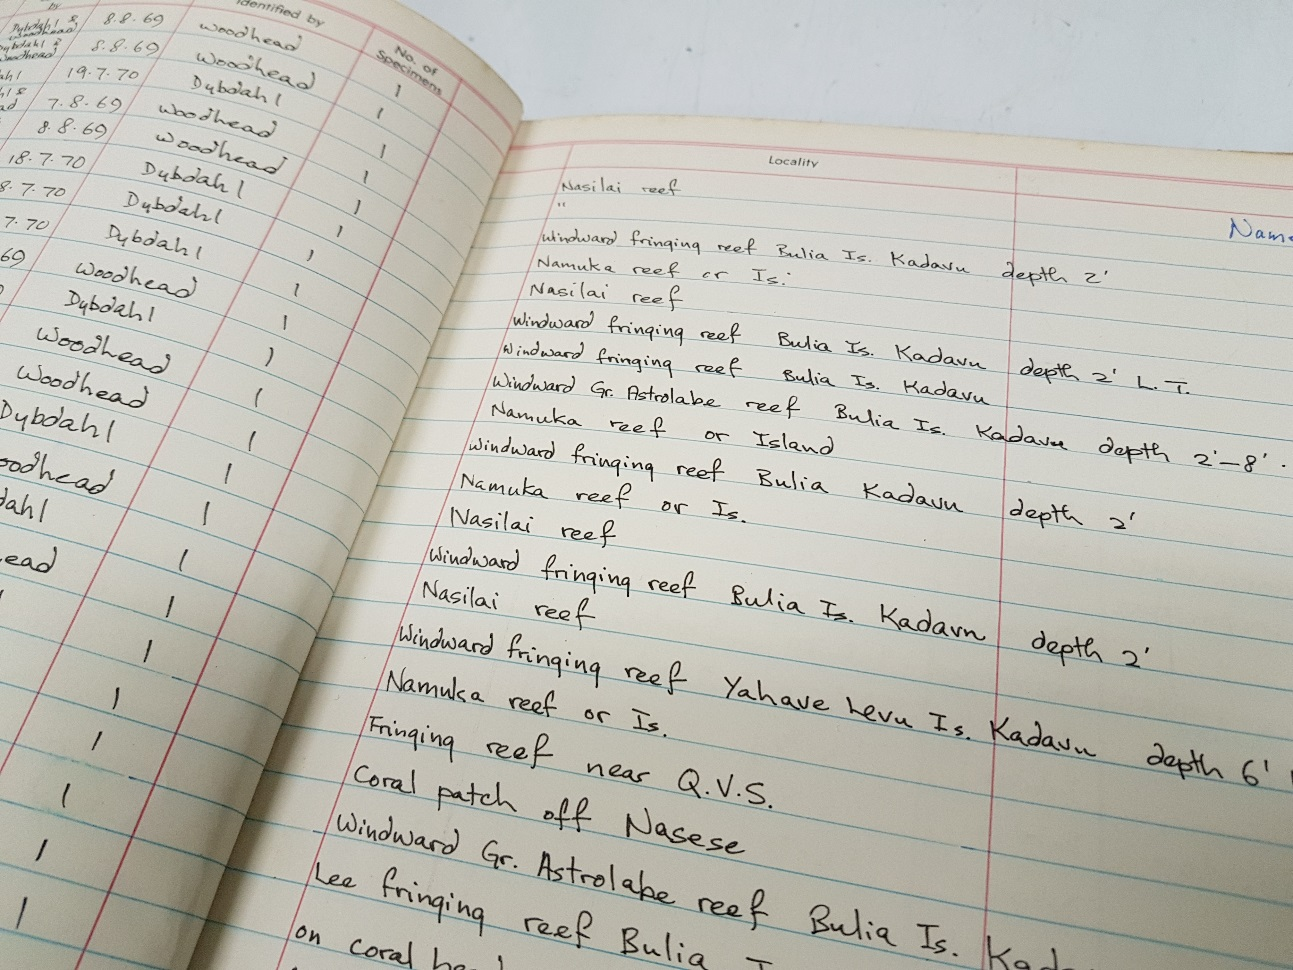 Identified by
No. of Specimens
8.8.69 Woodhead 1
8.8.69 Woodhead 1
19.7.70 Dybdahl 1
7.8.69 Woodhead 1
8.8.69 Woodhead 1
18.7.70 Dybdahl 1
8.7.70 Dybdahl 1
7.70 Dybdahl 1
69 Woodhead 1
Dybdahl 1
Woodhead 1
Woodhead 1
Dybdahl 1
oodhead 1
dahl 1
ead 1
1
1
1
1
1
1
Locality
Nasilai reef
"
Name
Windward fringing reef Bulia Is. Kadavu depth 2'
Namuka reef or Is.
Nasilai reef
Windward fringing reef Bulia Is. Kadavu depth 2' L.T.
Windward fringing reef Bulia Is. Kadavu
Windward Gr. Astrolabe reef Bulia Is. Kadavu depth 2'–8'.
Namuka reef or Island
Windward fringing reef Bulia Kadavu depth 2'
Namuka reef or Is.
Nasilai reef
Windward fringing reef Bulia Is. Kadavu depth 2'
Nasilai reef
Windward fringing reef Yahave Levu Is. Kadavu depth 6'
Namuka reef or Is.
Fringing reef near Q.V.S.
Coral patch off Nasese
Windward Gr. Astrolabe reef Bulia Is. Kad
Lee fringing reef Bulia I
on coral